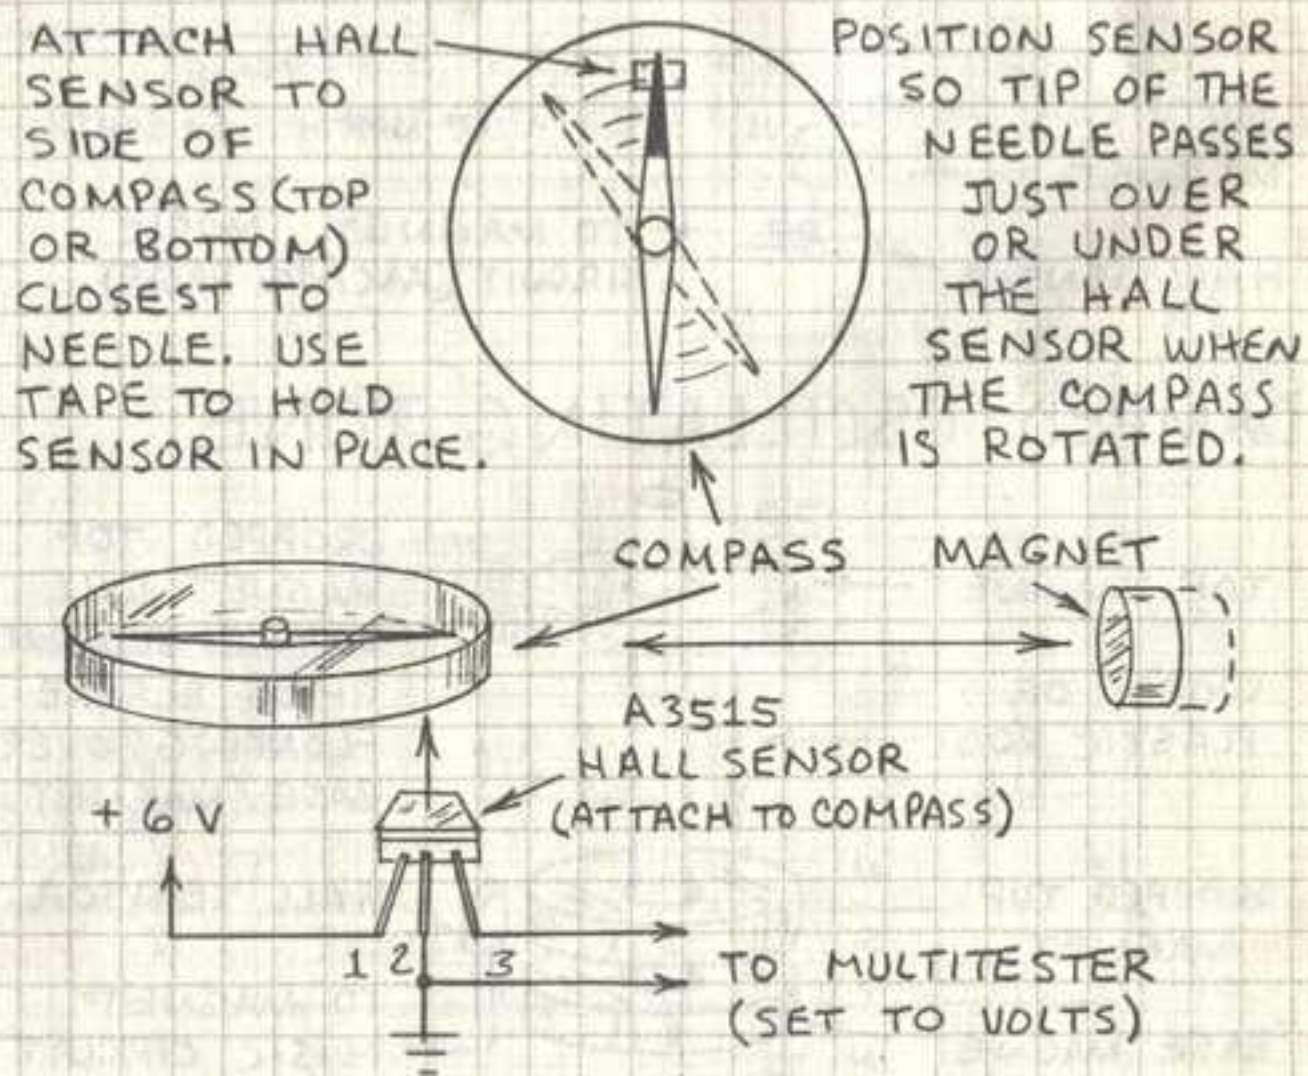 ATTACH HALL
SENSOR TO
SIDE OF
COMPASS (TOP
OR BOTTOM)
CLOSEST TO
NEEDLE. USE
TAPE TO HOLD
SENSOR IN PLACE.
POSITION SENSOR
SO TIP OF THE
NEEDLE PASSES
JUST OVER
OR UNDER
THE HALL
SENSOR WHEN
THE COMPASS
IS ROTATED.
COMPASS
MAGNET
A3515
HALL SENSOR
(ATTACH TO COMPASS)
+ 6 V
1 2 3
TO MULTITESTER
(SET TO VOLTS)